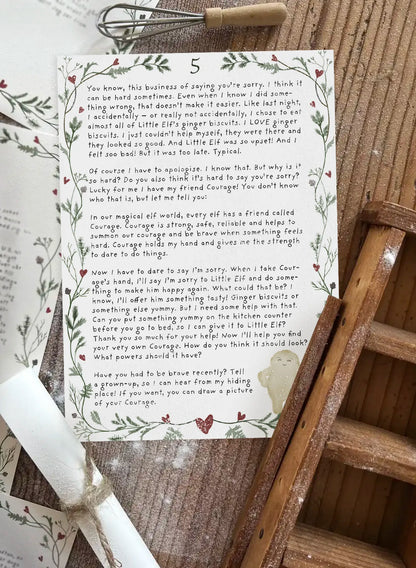 5
You know, this business of saying you're sorry. I think it
can be hard sometimes. Even when I know I did some-
thing wrong, that doesn't make it easier. Like last night,
I accidentally – or really not accidentally, I chose to eat
almost all of Little Elf's ginger biscuits. I LOVE ginger
biscuits. I just couldn't help myself, they were there and
they looked so good. And Little Elf was so upset! And I
felt soo bad! But it was too late. Typical.
Of course I have to apologise. I know that. But why is it
so hard? Do you also think it's hard to say you're sorry?
Lucky for me I have my friend Courage! You don't know
who that is, but let me tell you!
In our magical elf world, every elf has a friend called
Courage. Courage is strong, safe, reliable and helps to
summon our courage and be brave when something feels
hard. Courage holds my hand and gives me the strength
to dare to do things.
Now I have to dare to say I'm sorry. When I take Cour-
age's hand, I'll say I'm sorry to Little Elf and do some-
thing to make him happy again. What could that be? I
know, I'll offer him something tasty! Ginger biscuits or
something else yummy. But I need some help with that.
Can you put something yummy on the kitchen counter
before you go to bed, so I can give it to Little Elf?
Thank you so much for your help! Now I'll help you find
your very own Courage. How do you think it should look?
What powers should it have?
Have you had to be brave recently? Tell
a grown-up, so I can hear from my hiding
place! If you want, you can draw a picture
of your Courage.